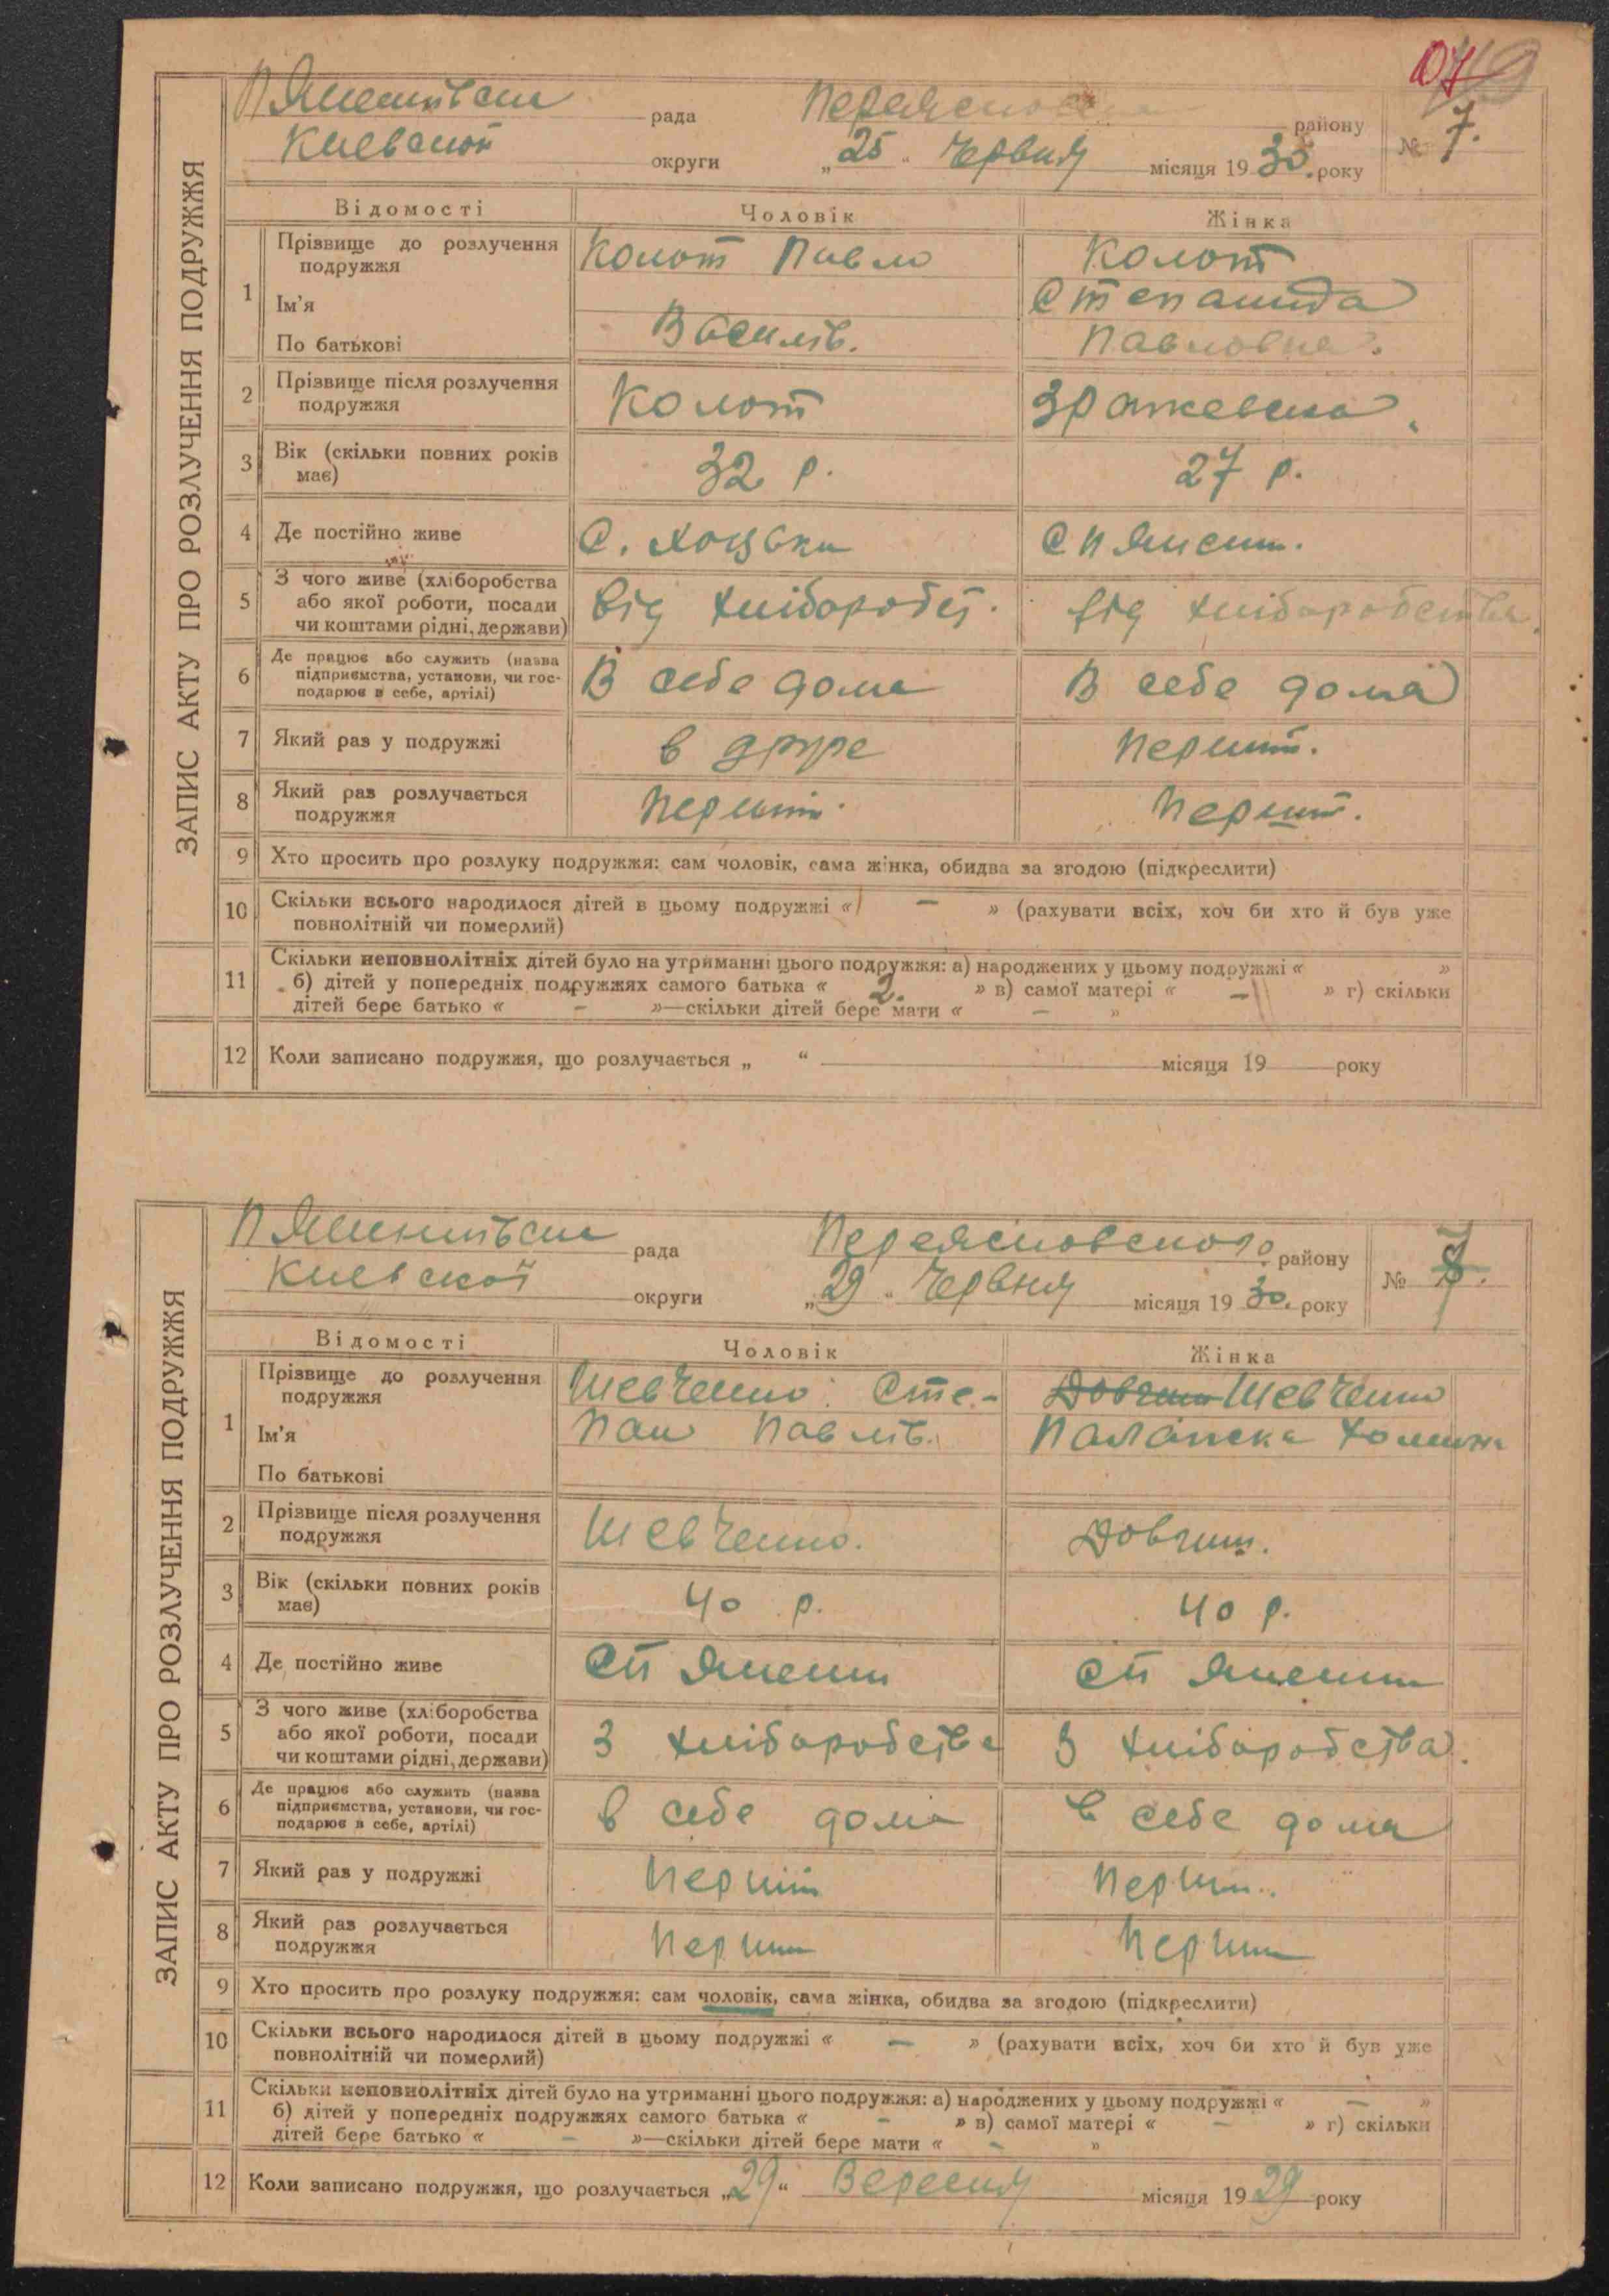 ЗАПИС АКТУ ПРО РОЗЛУЧЕННЯ ПОДРУЖЖЯ
рада района району
округи „25“ Червня місяця 1930. року № 7.
Відомості Чоловік Жінка
1 Прізвище до розлучення подружжя Колот Павло Колот
Ім'я Степанида
По батькові Василів. Павловна.
2 Прізвище після розлучення подружжя Колот Зражевська
3 Вік (скільки повних років має) 32 р. 27 р.
4 Де постійно живе С. Хоцьки
5 З чого живе (хліборобства або якої роботи, посади чи коштами рідні, держави) від хліборобст. від хліборобства
6 Де працює або служить (назва підприємства, установи, чи господарює в себе, артілі) В себе дома В себе дома
7 Який раз у подружжі в друге Перший.
8 Який раз розлучається подружжя Перший. Перший.
9 Хто просить про розлуку подружжя: сам чоловік, сама жінка, обидва за згодою (підкреслити)
10 Скільки всього народилося дітей в цьому подружжі « — » (рахувати всіх, хоч би хто й був уже
повнолітній чи померлий)
11 Скільки неповнолітніх дітей було на утриманні цього подружжя: а) народжених у цьому подружжі « »
б) дітей у попередніх подружжях самого батька « 2. » в) самої матері « — » г) скільки
дітей бере батько « — »—скільки дітей бере мати « — »
12 Коли записано подружжя, що розлучається „ “ місяця 19 року
ЗАПИС АКТУ ПРО РОЗЛУЧЕННЯ ПОДРУЖЖЯ
рада Переясловского району
Киевской округи „29“ Червня місяця 1930. року №
Відомості Чоловік Жінка
1 Прізвище до розлучення подружжя Шевченко Сте- Шевченко
Ім'я пан Павлів.
По батькові
2 Прізвище після розлучення подружжя Шевченко. Довгиш.
3 Вік (скільки повних років має) 40 р. 40 р.
4 Де постійно живе
5 З чого живе (хліборобства або якої роботи, посади чи коштами рідні, держави) З хліборобства З хліборобства.
6 Де працює або служить (назва підприємства, установи, чи господарює в себе, артілі) в себе дома в себе дома
7 Який раз у подружжі Перший Перший.
8 Який раз розлучається подружжя Перший Перший
9 Хто просить про розлуку подружжя: сам чоловік, сама жінка, обидва за згодою (підкреслити)
10 Скільки всього народилося дітей в цьому подружжі « — » (рахувати всіх, хоч би хто й був уже
повнолітній чи померлий)
11 Скільки неповнолітніх дітей було на утриманні цього подружжя: а) народжених у цьому подружжі « — »
б) дітей у попередніх подружжях самого батька « — » в) самої матері « — » г) скільки
дітей бере батько « — »—скільки дітей бере мати « — »
12 Коли записано подружжя, що розлучається „29“ Вересня місяця 1929 року